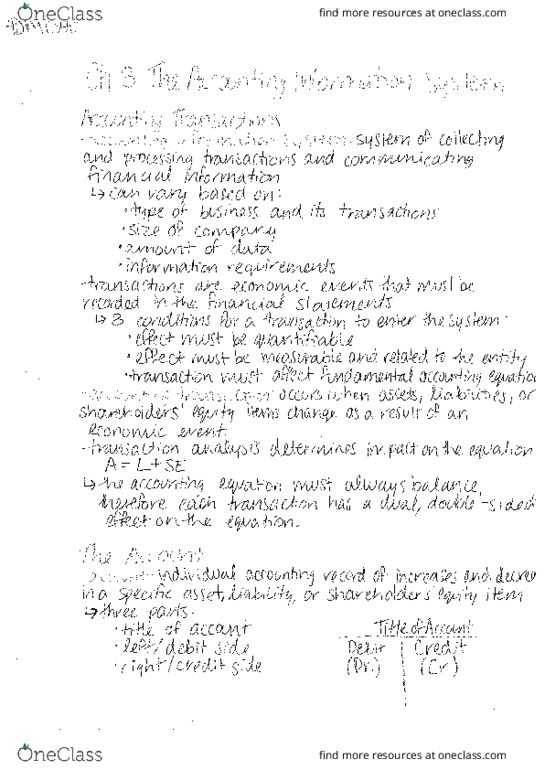 OneClass
find more resources at oneclass.com
Ch 3 The Accounting Information System
Accounting Transactions
-accounting information system: system of collecting
and processing transactions and communicating
financial information
↳can vary based on:
•type of business and its transactions
•size of company
•amount of data
•information requirements
-transactions are economic events that must be
recorded in the financial statements
↳3 conditions for a transaction to enter the system:
•effect must be quantifiable
•effect must be measurable and related to the entity
•transaction must affect fundamental accounting equation
occurs when assets, liabilities, or
shareholders' equity items change as a result of an
economic event.
-transaction analysis determines impact on the equation
A = L + SE
↳the accounting equation must always balance,
therefore each transaction has a dual, double-sided
effect on the equation.
The Account
individual accounting record of increases and decrea
in a specific asset, liability, or shareholders' equity item
↳three parts:
•title of account
•left/debit side
•right/credit side
Title of Account
Debit Credit
(Dr.) (Cr)
OneClass
find more resources at oneclass.com